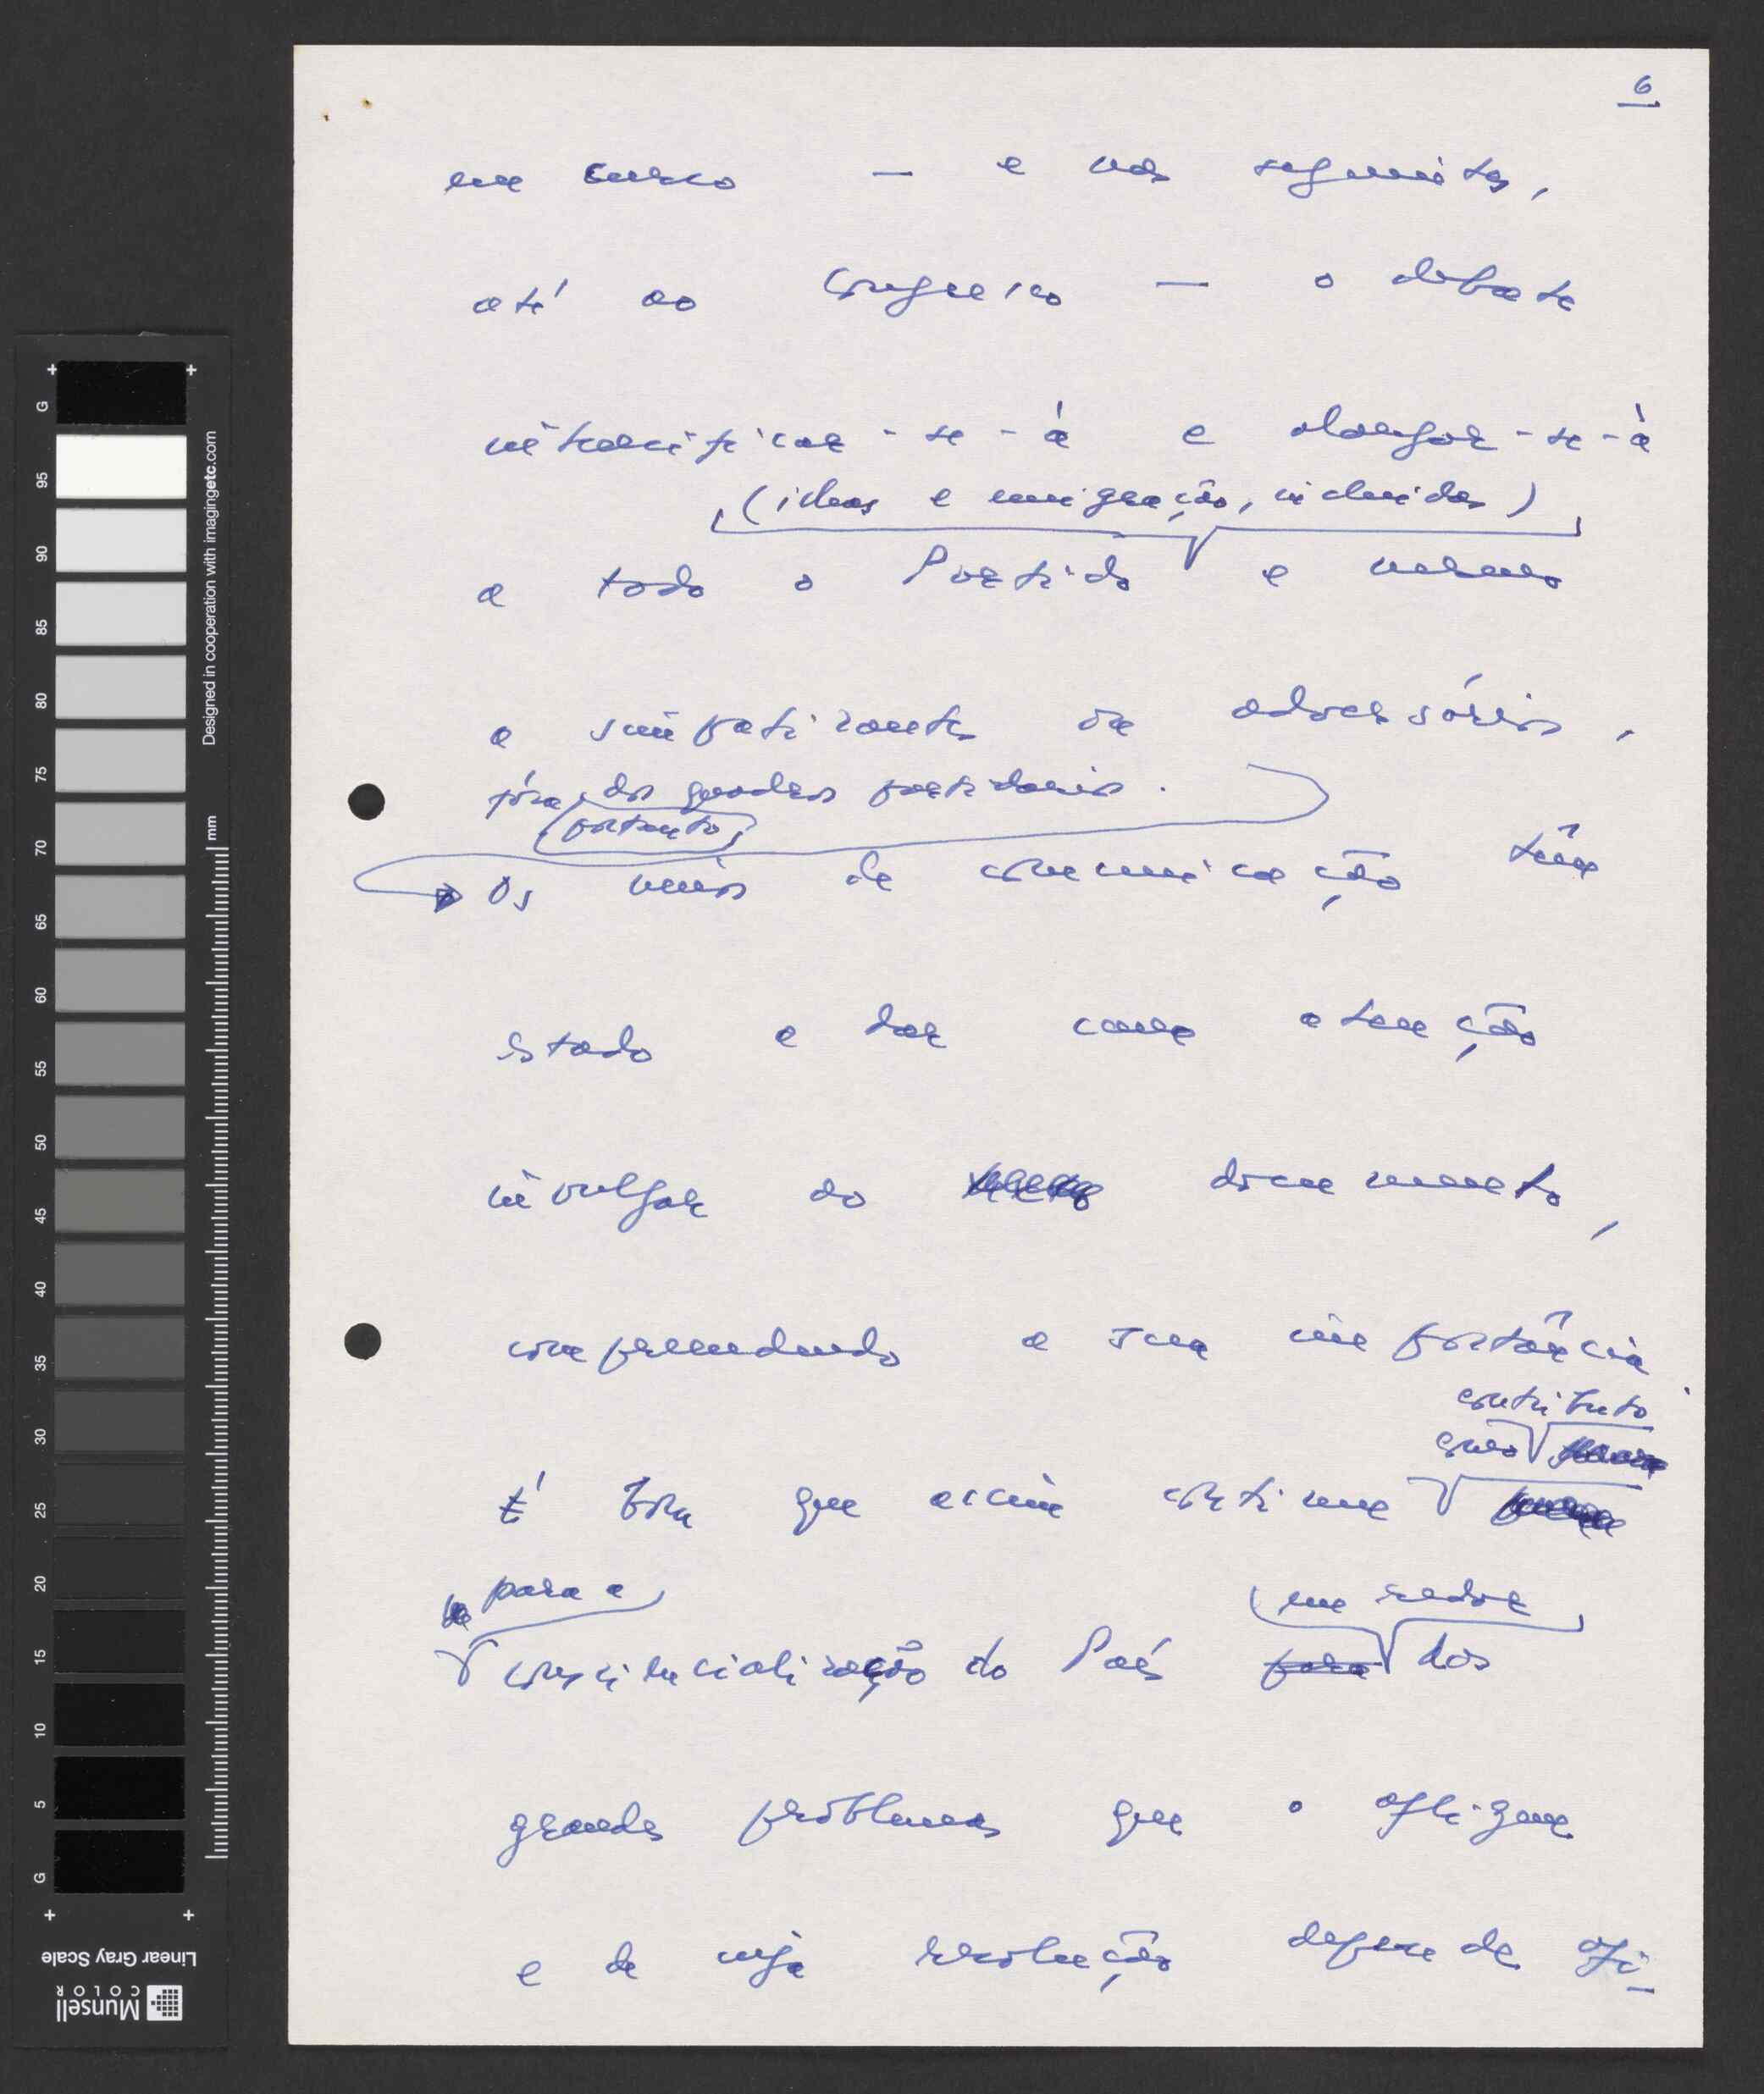 6
em curso — e nos seguintes,
até ao congresso — o debate
intensificar-se-á e alargar-se-á
(ilhas e emigração, incluídas)
a todo o Partido e mesmo
a simpatizantes ou adversários,
fóra, dos quadros partidários.
portanto,
Os meios de comunicação têm
estado a dar uma atenção
invulgar ao documento,
compreendendo a sua importância.
contributo
como
É bom que assim continue
para a
em redor
consciencialização do País para dos
grandes problemas que o afligem
e de cuja resolução depende afi-
G
95
90
85
80
75
70
65
60
55
50
45
40
35
30
25
20
15
10
5
G
Designed in cooperation with imagingetc.com
mm
Linear Gray Scale
Munsell
COLOR